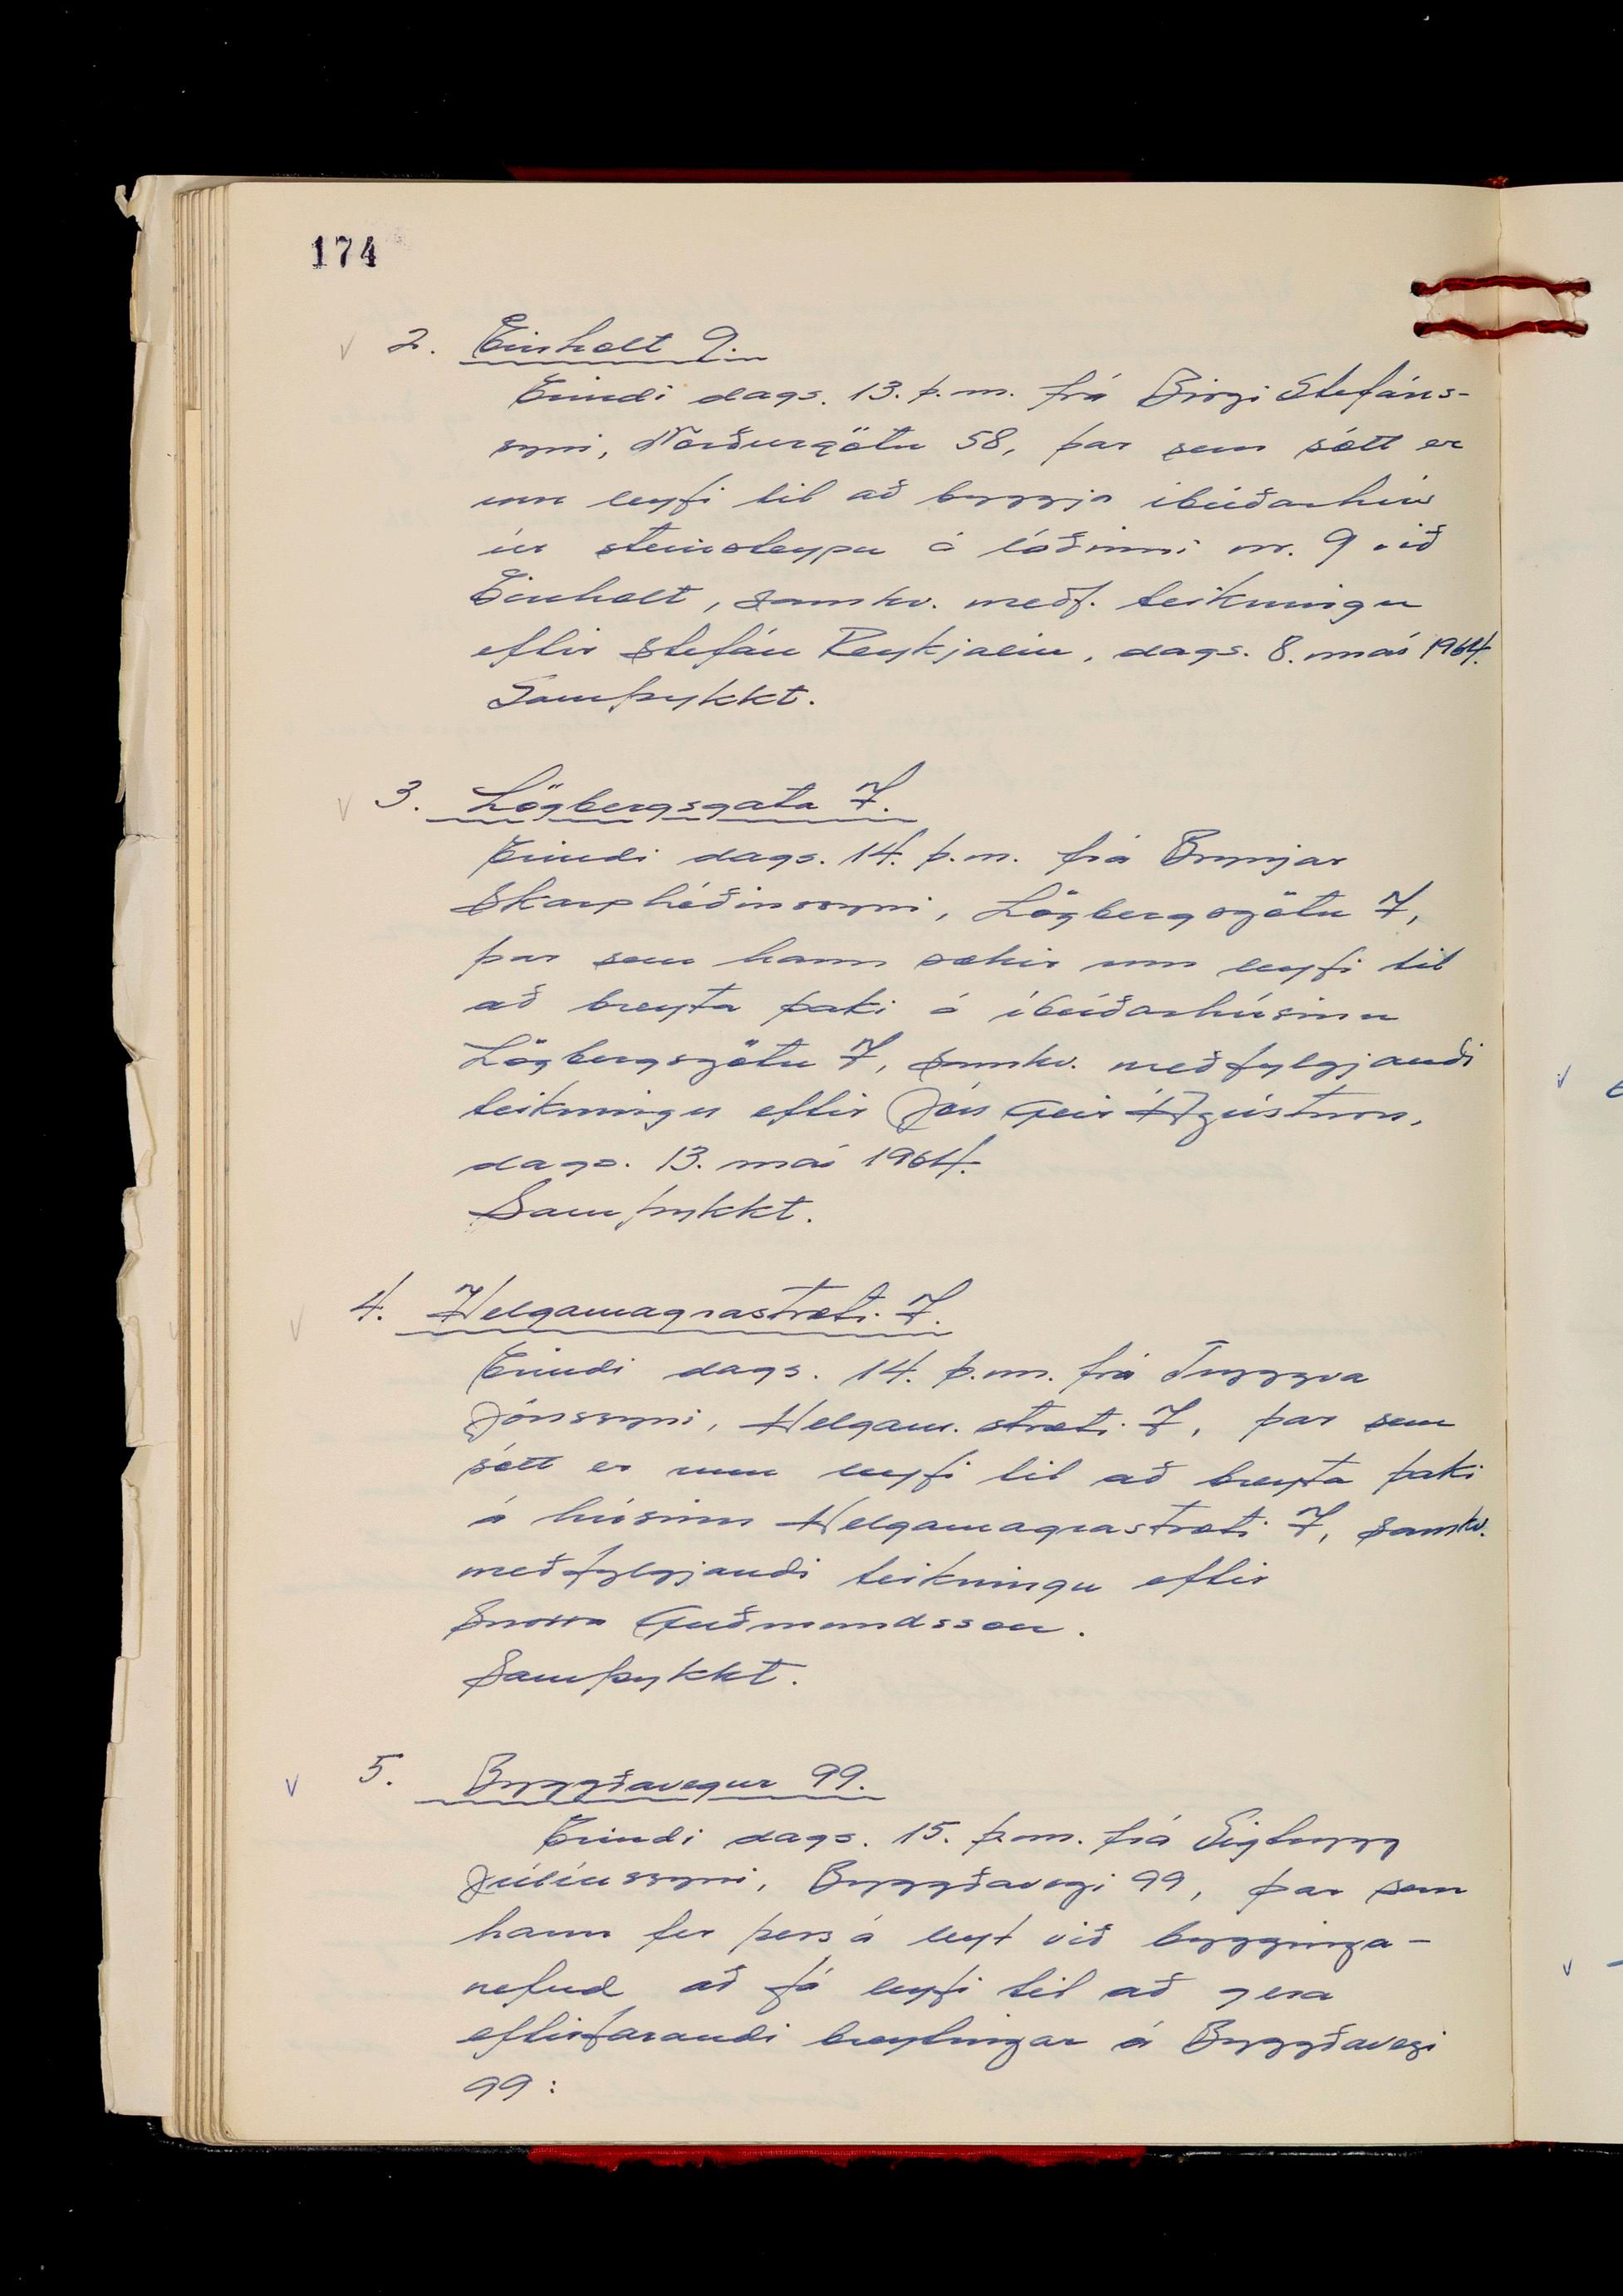 174
v 2. Einholt 9.
Erindi dags. 13. þ.m. frá Birgi Stefáns-
syni, Norðurgötu 58, þar sem sótt er
um leyfi til að byggja íbúðarhús
úr steinsteypu á lóðinni nr. 9 við
Einholt, samkv. meðf. teikningu
eftir Stefán Reykjalín, dags. 8. maí 1964.
Samþykkt.
v 3. Lögbergsgata 7.
Erindi dags. 14. þ.m. frá Brynjar
Skarphéðinssyni, Lögbergsgötu 7,
þar sem hann sækir um leyfi til
að breyta þaki á íbúðarhúsinu
Lögbergsgötu 7, samkv. meðfylgjandi
teikningu eftir Jón Geir Ágústsson,
dags. 13. maí 1964.
Samþykkt.
v 4. Helgamagrastræti 7.
Erindi dags. 14. þ.m. frá Tryggva
Jónssyni, Helgam.stræti 7, þar sem
sótt er um leyfi til að breyta þaki
á húsinu Helgamagrastræti 7, samkv.
meðfylgjandi teikningu eftir
Snorra Guðmundsson.
Samþykkt.
v 5. Byggðavegur 99.
Erindi dags. 15. þ.m. frá Sigtrygg
Júlíussyni, Byggðavegi 99, þar sem
hann fer þess á leyt við bygginga-
nefnd að fá leyfi til að gera
eftirfarandi breytingar á Byggðavegi
99: